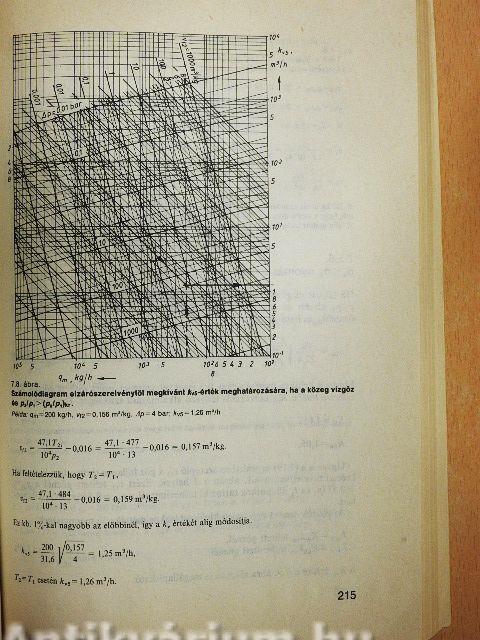 0,001
0,01
0,1
1
10
100
v₍₂=1000 m³/kg
Δp=0,01 bar
0,1
1
10
100
1000
10⁴
5 kᵥₛ,
m³/h
10³
5
10²
5
10¹
5
1
8
6
5
4
3
2
10⁻¹
2
4
6
8
10⁵ 5 10⁴ 5 10³ 5 10² 6 5 4 3 2 10¹
8
qₘ, kg/h
7.8. ábra.
Számolódiagram elzárószerelvénytől megkívánt kᵥₛ-érték meghatározására, ha a közeg vízgőz
és p₂/p₁>(p₂/p₁)ₖᵣ.
Példa: qₘ=200 kg/h, vf₂=0,156 m³/kg, Δp=4 bar; kᵥₛ=1,26 m³/h
vf₂ = 47,1T₂ᵢ / 10⁴p₂ −0,016 = 47,1 · 477 / 10⁴ · 13 −0,016 = 0,157 m³/kg.
Ha feltételezzük, hogy T₂ = T₁,
vf₂ = 47,1 · 484 / 10⁴ · 13 −0,016 = 0,159 m³/kg.
Ez kb. 1%-kal nagyobb az előbbinél, így a kᵥ értékét alig módosítja.
kᵥₛ = 200 / 31,6 √(0,157 / 4) = 1,25 m³/h,
T₂=T₁ esetén kᵥₛ=1,26 m³/h.
215
Antikvárium.hu